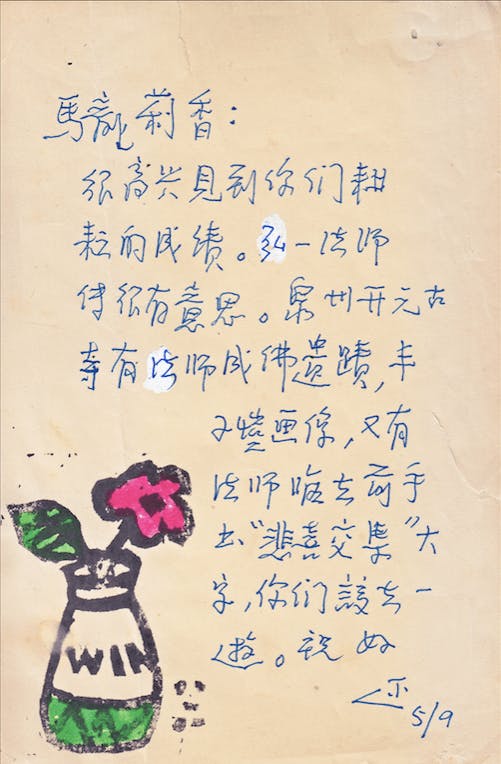 馬龍 莉香：
很高兴見到你们耕
耘的成績。弘一法师
传很有意思。泉州开元古
寺有法师成佛遺蹟，丰
子愷画像，又有
法师临去前手
书“悲喜交集”大
字，你们該去一
遊。祝好
5/9
WIN